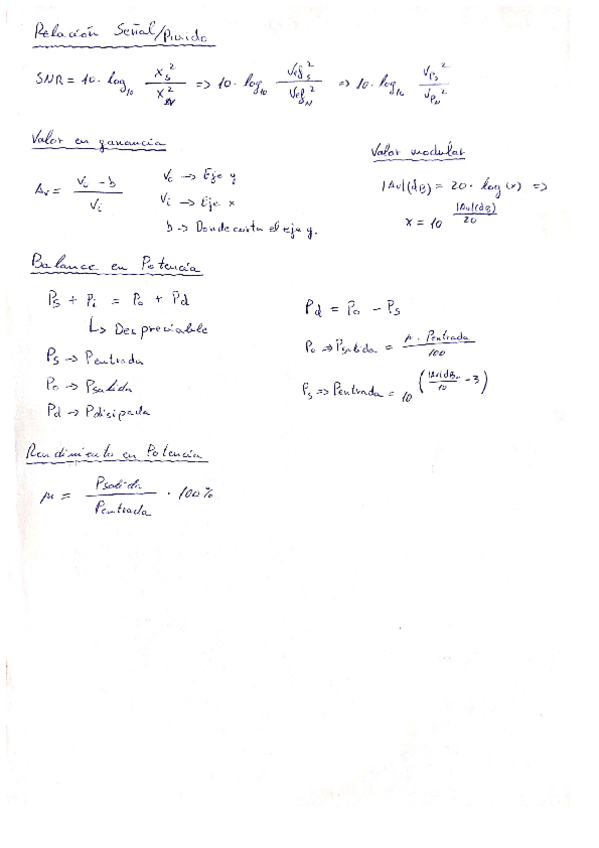 Relación Señal/Ruido
SNR = 10 · log₁₀ Xs²/XN² => 10 · log₁₀ Vefs²/VefN² => 10 · log₁₀ VPs²/VPN²
Valor en ganancia
Av = (Vi - b)/Vi
Vc -> Eje y
Vi -> Eje x
b -> Donde corta el eje y.
Valor modular
|Av|(dB) = 20 · log(x) =>
x = 10^(|Av|(dB)/20)
Balance en Potencia
Ps + Pi = Po + Pd
↳ Despreciable
Ps -> Pentrada
Po -> Psalida
Pd -> Pdisipada
Pd = Po - Ps
Po => Psalida = (μ · Pentrada)/100
Ps => Pentrada = 10^(|Av|dBm/10 - 3)
Rendimiento en Potencia
μ = Psalida/Pentrada · 100%